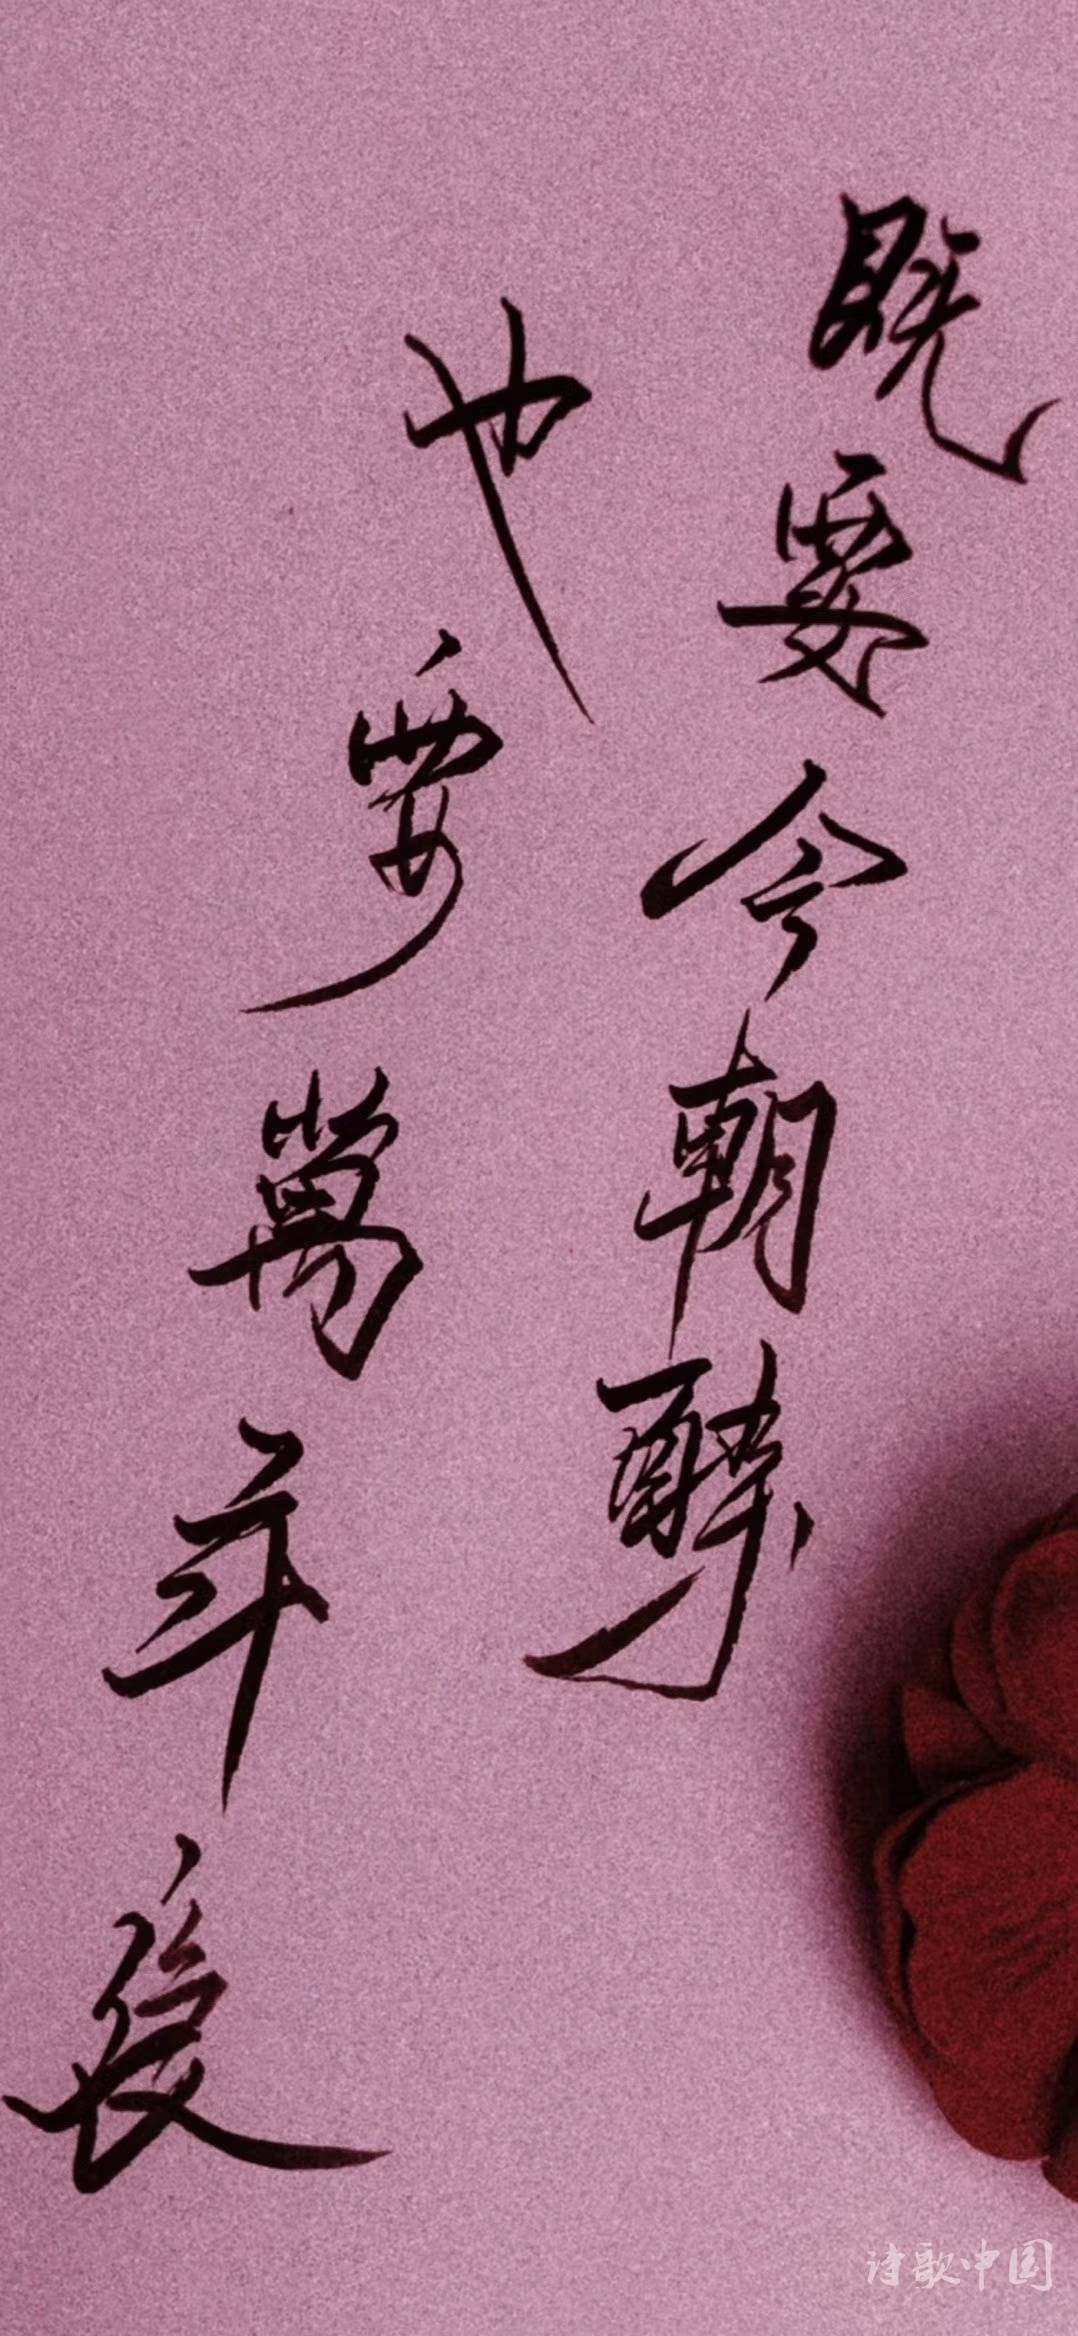 既要今朝醉
也要萬年長
诗歌中国